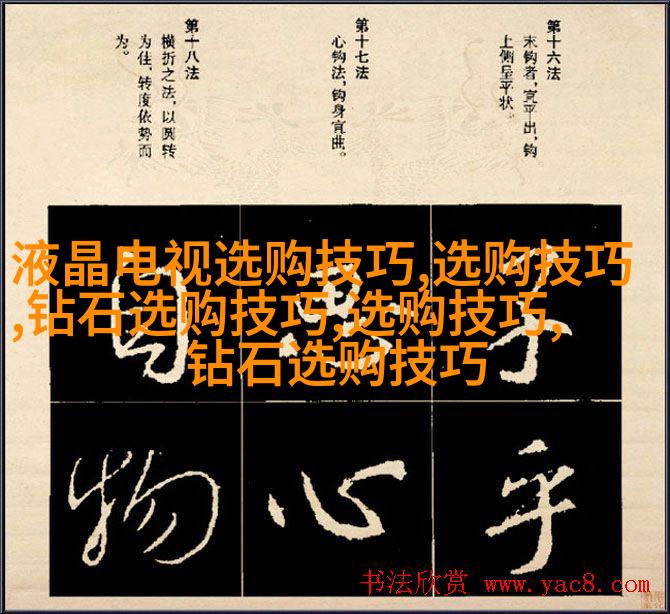 第十六法
末钩者,宜平出,钩
上侧呈平状
第十七法
心钩法,钩身宜曲。
第十八法
横折之法,以圆转
为佳,转度依势而
为。
液晶电视选购技巧,选购技巧
,钻石选购技巧,选购技巧,
钻石选购技巧
乎
心
目
物
书法欣赏 www.yac8.com